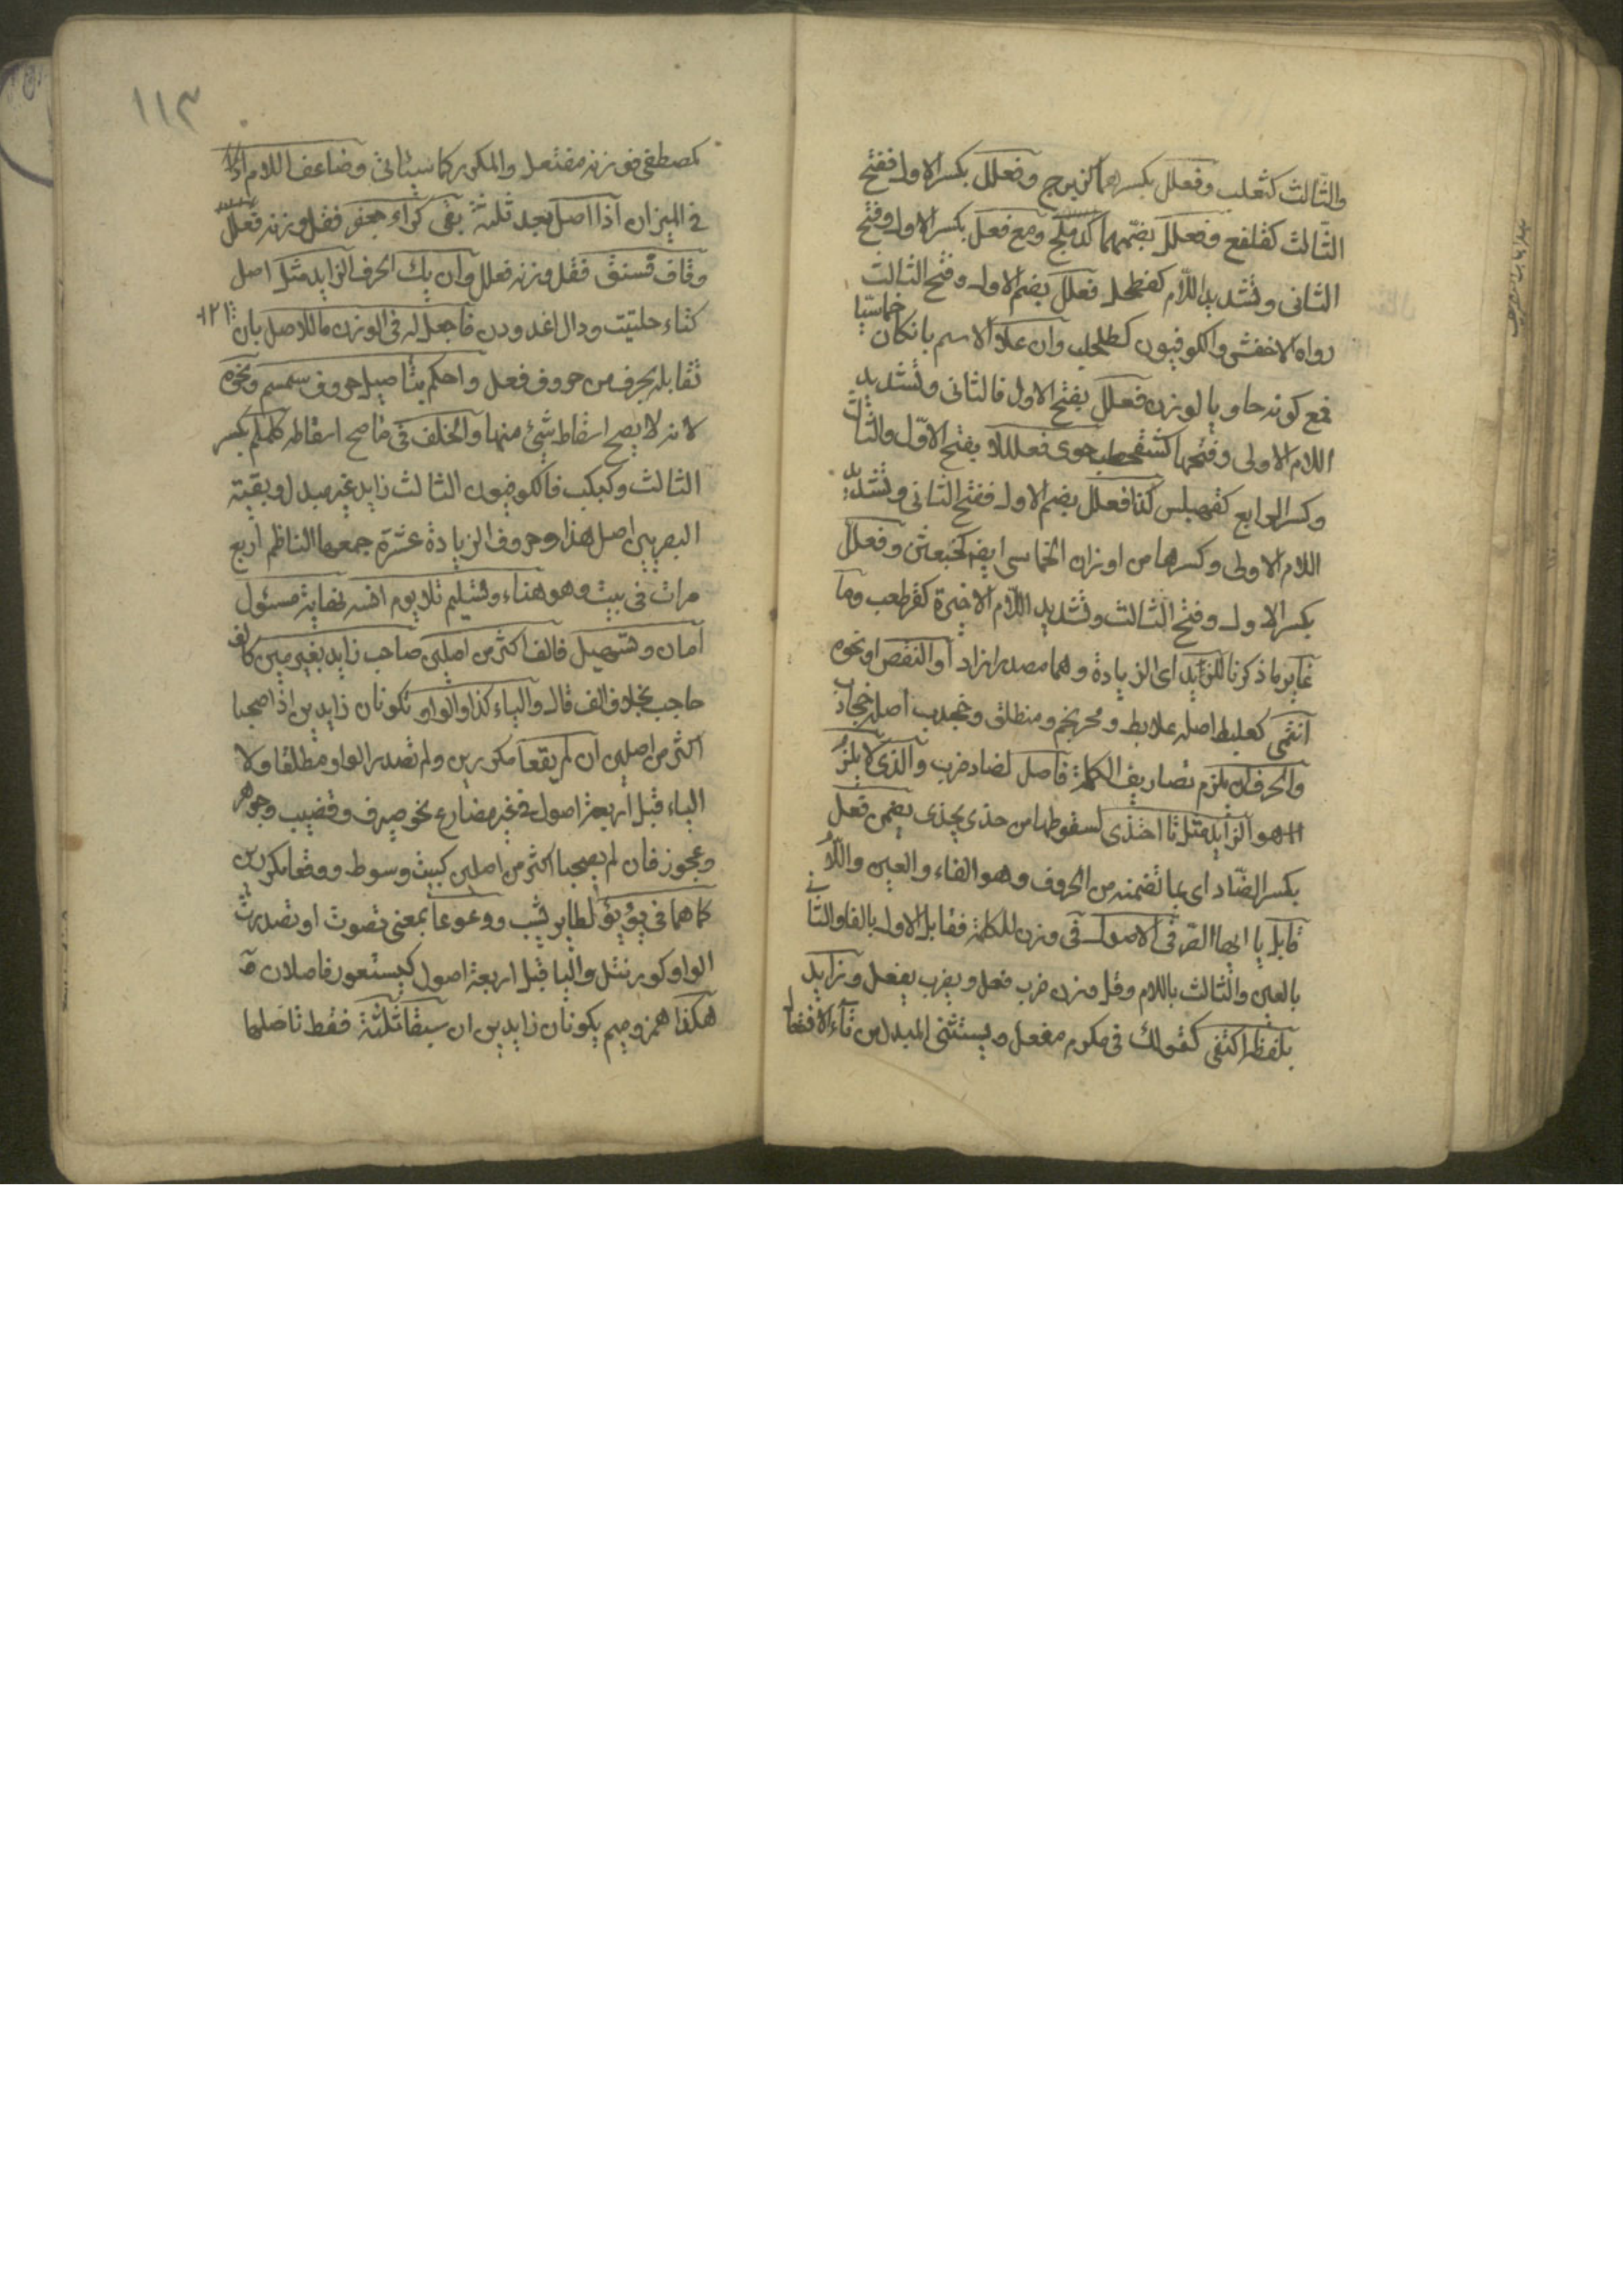 والثالث كثعلب وفعلل بكسرهما كزبرج وفعلل بكسر الاول ففتح
الثالث كقلفع وفعلل بضمهما كدملج ومع فعل بكسر الاول وفتح
الثانى وتشديد اللام كفطحل فعلل بضم الاول وفتح الثالث
رواه الاخفش والكوفيون كطحلب وان علا الاسم بانكان خماسيا
فمع كونه حاويا لوزن فعلل بفتح الاول فالثانى وتشديد
اللام الاولى وفتحها كشقحطب حوى فعللا بفتح الاول والثالث
وكسر الرابع كقهبلس كذا فعلل بضم الاول ففتح الثانى وتشديد
اللام الاولى وكسرها من اوزان الخماسى ايضا كخبعثن وفعلل
بكسر الاول وفتح الثالث وتشديد اللام الاخيرة كقرطعب وما
غاير ما ذكرنا للزيد اى الزيادة وهما مصدرا زاد او النقص او نحوه
انتمى كعلبط اصله علابط ومحرنجم ومنطلق وخجدب اصله خجادب
والحرف ان يلزم تصاريف الكلمة فاصل لضاد ضرب والذى لا يلزم
هو الزايد مثل تا احتذى لسقوطها من حذى يحذى بضمن فعل
بكسر الضاد اى بما تضمنه من الحروف وهو الفاء والعين واللام
قابل يا ايها الصرفى الاصول فى وزن للكلمة فقابل الاول بالفا والثانى
بالعين والثالث باللام وقل وزن ضرب فعل ويضرب يفعل وزايد
بلفظه اكتفى كقولك فى مكرم مفعل ويستثنى المبدل من تاء الافتعال
١١٣
كمصطفى فوزنه مفتعل والمكرر كما سيئاتى وضاعف اللام
فى الميزان اذا اصل بعد ثلثة بقى كراء جعفر فقل وزنه فعلل
وقاف فستق فقل وزنه فعلل وان يك الحرف الزايد مثل اصل
كتاء حلتيت ودال اغدودن فاجعل له فى الوزن ما للاصل بان
تقابله بحرف من حروف فعل واحكم بتاصيل حروف سمسم ونحوه
لانه لا يصح اسقاط شيئ منها والخلف فى ما صح اسقاطه كلملم بكسر
الثالث وكبكب فالكوفيون الثالث زايد غير مبدل وبقية
البصريين اصل هذا وحروف الزيادة عشرة جمعها الناظم اربع
مرات فى بيت وهو هناء وتسليم تلا يوم انسه نهاية مسئول
امان وتسهيل فالف اكثر من اصلين صاحب زايد بغير مين كالف
حاجب بخلاف الف قال والياء كذا والواو تكونان زايدين اذا صحبا
اكثر من اصلين ان لم يقعا مكررين ولم تصدر الواو مطلقا ولا
الياء قبل اربعة اصول فى غير مضارع نحو صيرف وقضيب وجوهر
وعجوز فان لم يصحبا اكثر من اصلين كبيت وسوط ووقعا مكررين
كما هما فى يؤيؤ لطاير يشب ووعوعا بمعنى تصوت او تصدرت
الواو كورنتل واليا قبل اربعة اصول كيستعور فاصلان
هكذا همز وميم يكونان زايدين ان سبقا ثلثة فقط تاصلها